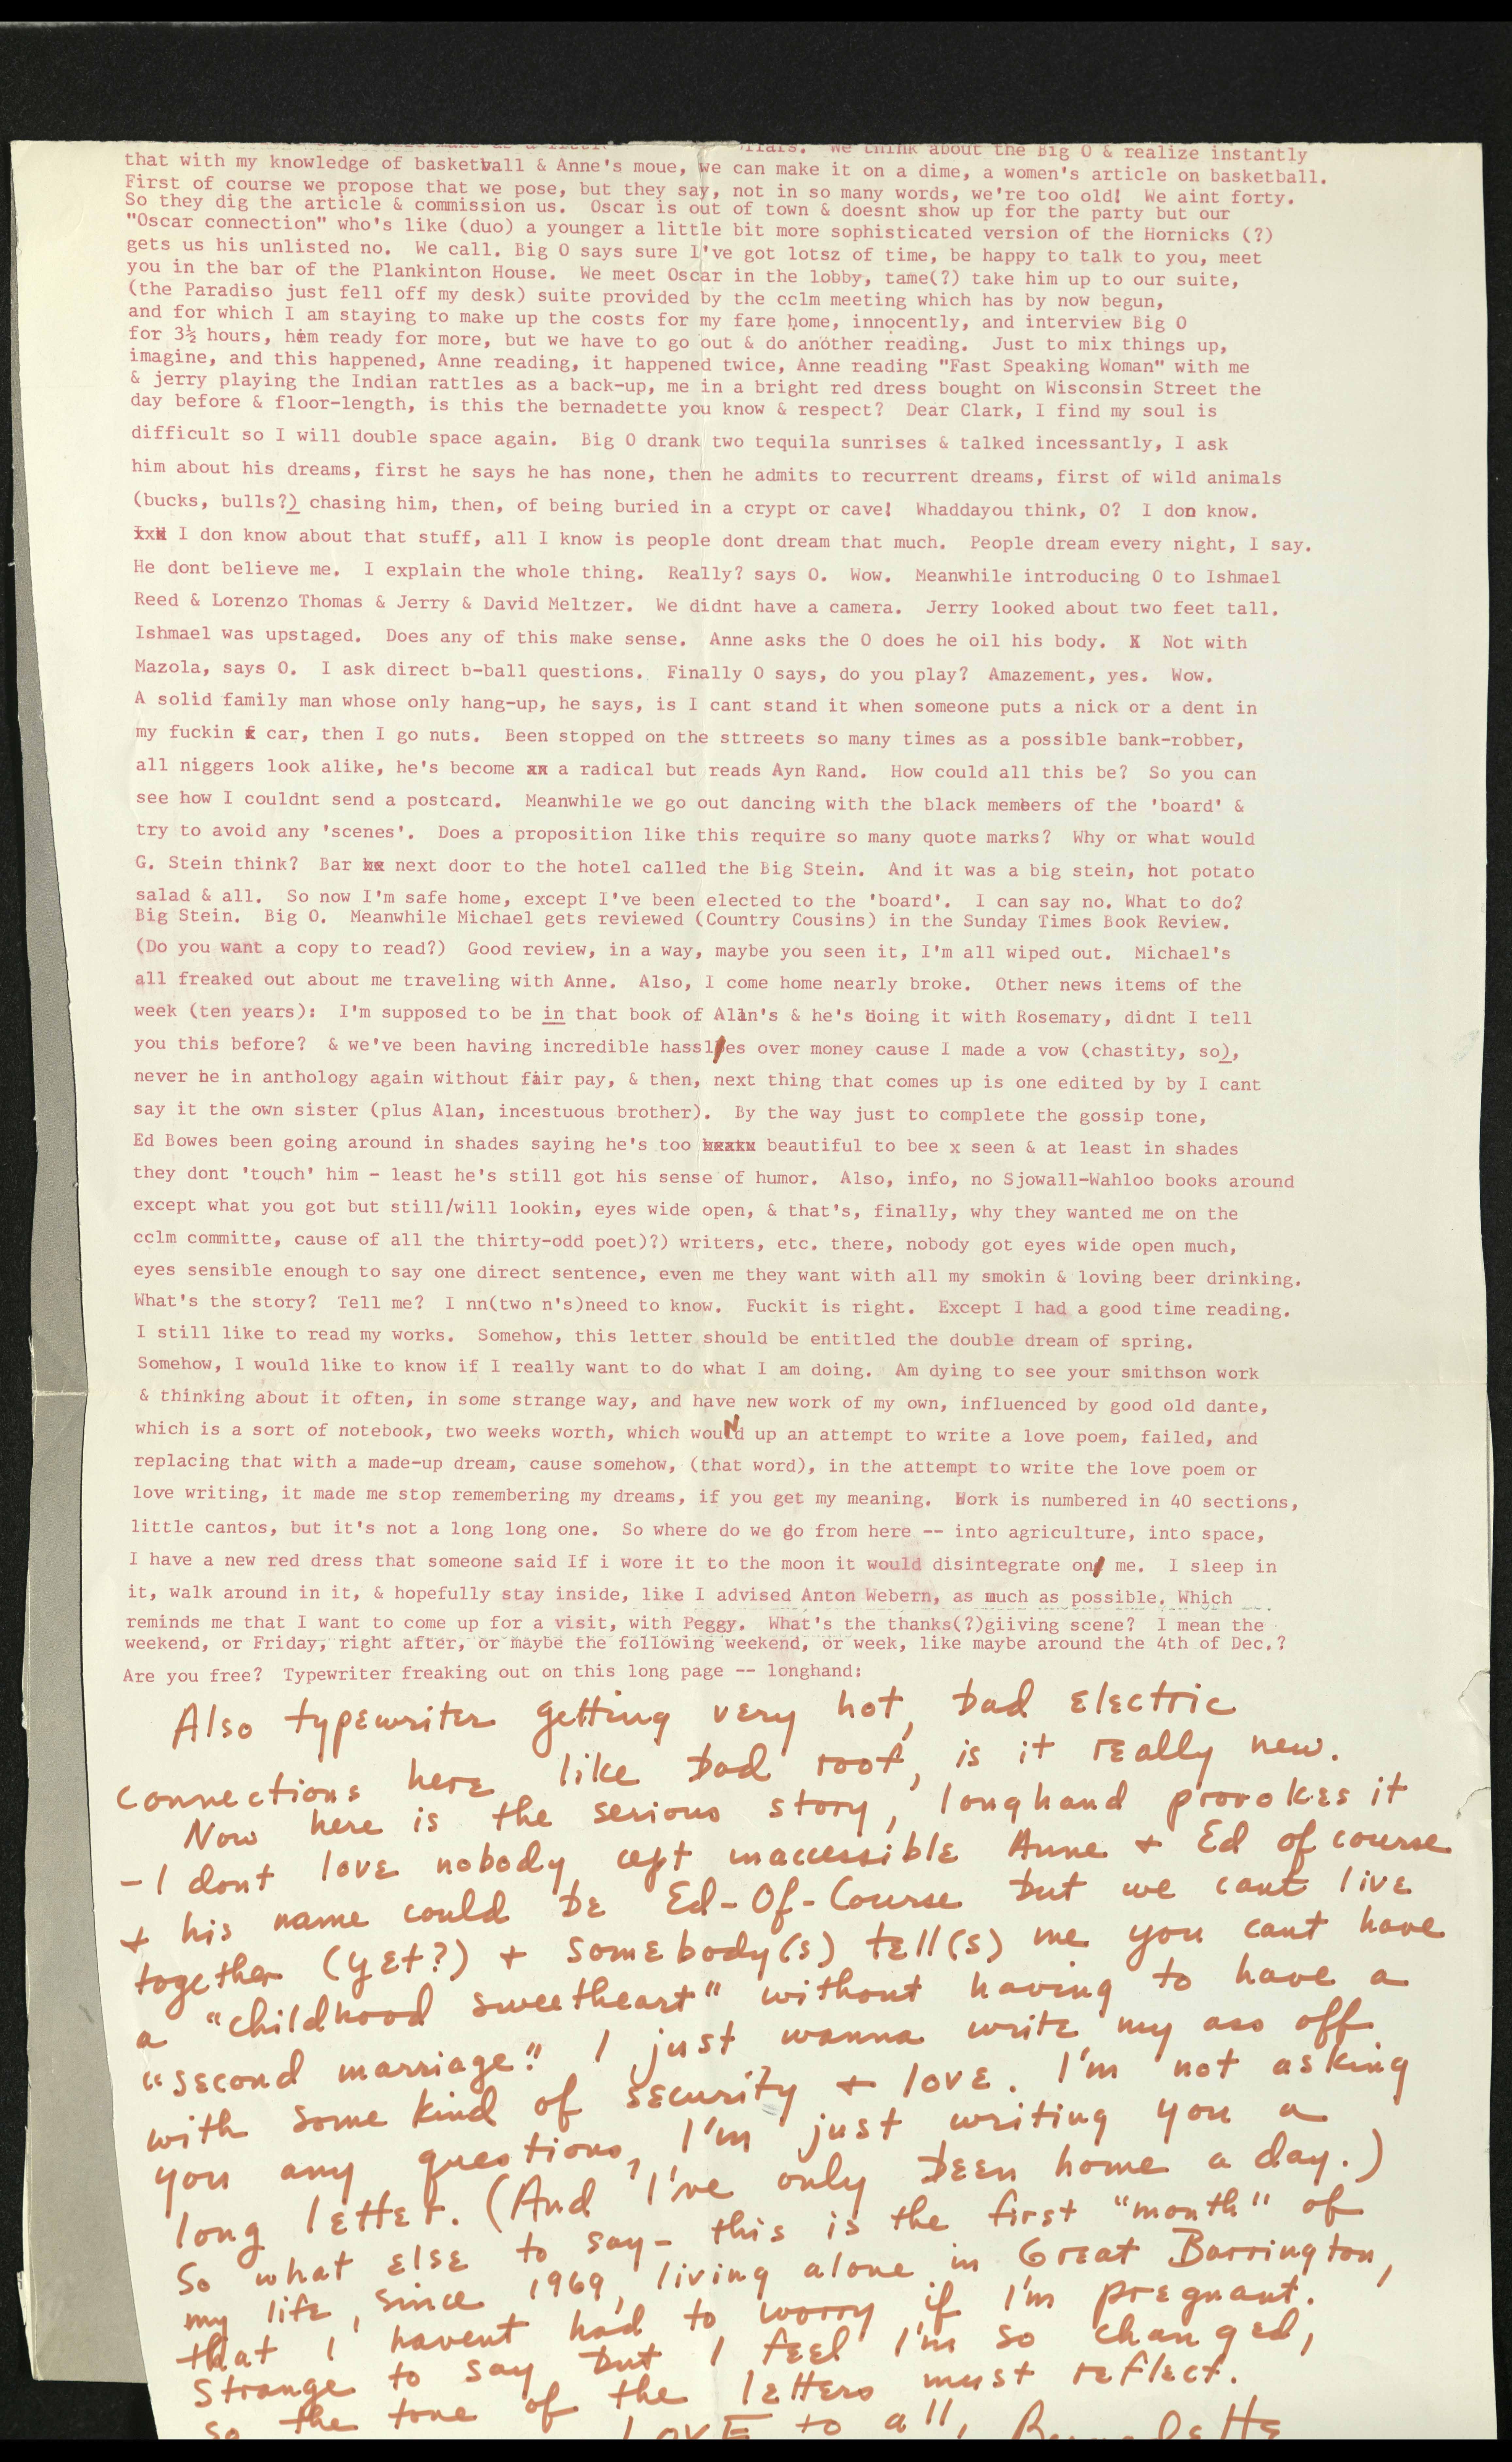 We think about the Big O & realize instantly
that with my knowledge of basketball & Anne's moue, we can make it on a dime, a women's article on basketball.
First of course we propose that we pose, but they say, not in so many words, we're too old! We aint forty.
So they dig the article & commission us. Oscar is out of town & doesnt show up for the party but our
"Oscar connection" who's like (duo) a younger a little bit more sophisticated version of the Hornicks (?)
gets us his unlisted no. We call. Big O says sure I've got lotsz of time, be happy to talk to you, meet
you in the bar of the Plankinton House. We meet Oscar in the lobby, tame(?) take him up to our suite,
(the Paradiso just fell off my desk) suite provided by the cclm meeting which has by now begun,
and for which I am staying to make up the costs for my fare home, innocently, and interview Big O
for 3½ hours, him ready for more, but we have to go out & do another reading. Just to mix things up,
imagine, and this happened, Anne reading, it happened twice, Anne reading "Fast Speaking Woman" with me
& jerry playing the Indian rattles as a back-up, me in a bright red dress bought on Wisconsin Street the
day before & floor-length, is this the bernadette you know & respect? Dear Clark, I find my soul is
difficult so I will double space again. Big O drank two tequila sunrises & talked incessantly, I ask
him about his dreams, first he says he has none, then he admits to recurrent dreams, first of wild animals
(bucks, bulls?) chasing him, then, of being buried in a crypt or cave! Whaddayou think, O? I don know.
I don know about that stuff, all I know is people dont dream that much. People dream every night, I say.
He dont believe me. I explain the whole thing. Really? says O. Wow. Meanwhile introducing O to Ishmael
Reed & Lorenzo Thomas & Jerry & David Meltzer. We didnt have a camera. Jerry looked about two feet tall.
Ishmael was upstaged. Does any of this make sense. Anne asks the O does he oil his body. X Not with
Mazola, says O. I ask direct b-ball questions. Finally O says, do you play? Amazement, yes. Wow.
A solid family man whose only hang-up, he says, is I cant stand it when someone puts a nick or a dent in
my fuckin car, then I go nuts. Been stopped on the sttreets so many times as a possible bank-robber,
all niggers look alike, he's become a radical but reads Ayn Rand. How could all this be? So you can
see how I couldnt send a postcard. Meanwhile we go out dancing with the black members of the 'board' &
try to avoid any 'scenes'. Does a proposition like this require so many quote marks? Why or what would
G. Stein think? Bar next door to the hotel called the Big Stein. And it was a big stein, hot potato
salad & all. So now I'm safe home, except I've been elected to the 'board'. I can say no. What to do?
Big Stein. Big O. Meanwhile Michael gets reviewed (Country Cousins) in the Sunday Times Book Review.
(Do you want a copy to read?) Good review, in a way, maybe you seen it, I'm all wiped out. Michael's
all freaked out about me traveling with Anne. Also, I come home nearly broke. Other news items of the
week (ten years): I'm supposed to be in that book of Alan's & he's doing it with Rosemary, didnt I tell
you this before? & we've been having incredible hassles over money cause I made a vow (chastity, so),
never be in anthology again without fair pay, & then, next thing that comes up is one edited by by I cant
say it the own sister (plus Alan, incestuous brother). By the way just to complete the gossip tone,
Ed Bowes been going around in shades saying he's too beautiful to bee x seen & at least in shades
they dont 'touch' him - least he's still got his sense of humor. Also, info, no Sjowall-Wahloo books around
except what you got but still/will lookin, eyes wide open, & that's, finally, why they wanted me on the
cclm committe, cause of all the thirty-odd poet)?) writers, etc. there, nobody got eyes wide open much,
eyes sensible enough to say one direct sentence, even me they want with all my smokin & loving beer drinking.
What's the story? Tell me? I nn(two n's)need to know. Fuckit is right. Except I had a good time reading.
I still like to read my works. Somehow, this letter should be entitled the double dream of spring.
Somehow, I would like to know if I really want to do what I am doing. Am dying to see your smithson work
& thinking about it often, in some strange way, and have new work of my own, influenced by good old dante,
which is a sort of notebook, two weeks worth, which wouNd up an attempt to write a love poem, failed, and
replacing that with a made-up dream, cause somehow, (that word), in the attempt to write the love poem or
love writing, it made me stop remembering my dreams, if you get my meaning. Work is numbered in 40 sections,
little cantos, but it's not a long long one. So where do we go from here -- into agriculture, into space,
I have a new red dress that someone said If i wore it to the moon it would disintegrate on me. I sleep in
it, walk around in it, & hopefully stay inside, like I advised Anton Webern, as much as possible. Which
reminds me that I want to come up for a visit, with Peggy. What's the thanks(?)giiving scene? I mean the
weekend, or Friday, right after, or maybe the following weekend, or week, like maybe around the 4th of Dec.?
Are you free? Typewriter freaking out on this long page -- longhand:
Also typewriter getting very hot, bad electric
connections here like bad roof, is it really new.
Now here is the serious story, longhand provokes it
- I dont love nobody cept inaccessible Anne + Ed of course
+ his name could be Ed-Of-Course but we cant live
together (yet?) + somebody(s) tell(s) me you cant have
a "childhood sweetheart" without having to have a
"second marriage." I just wanna write my ass off
with some kind of security + love. I'm not asking
you any questions, I'm just writing you a
long letter. (And I've only been home a day.)
So what else to say - this is the first "month" of
my life, since 1969, living alone in Great Barrington,
that I havent had to worry if I'm pregnant.
Strange to say but I feel I'm so changed,
so the tone of the letters must reflect.
LOVE to all, Bernadette